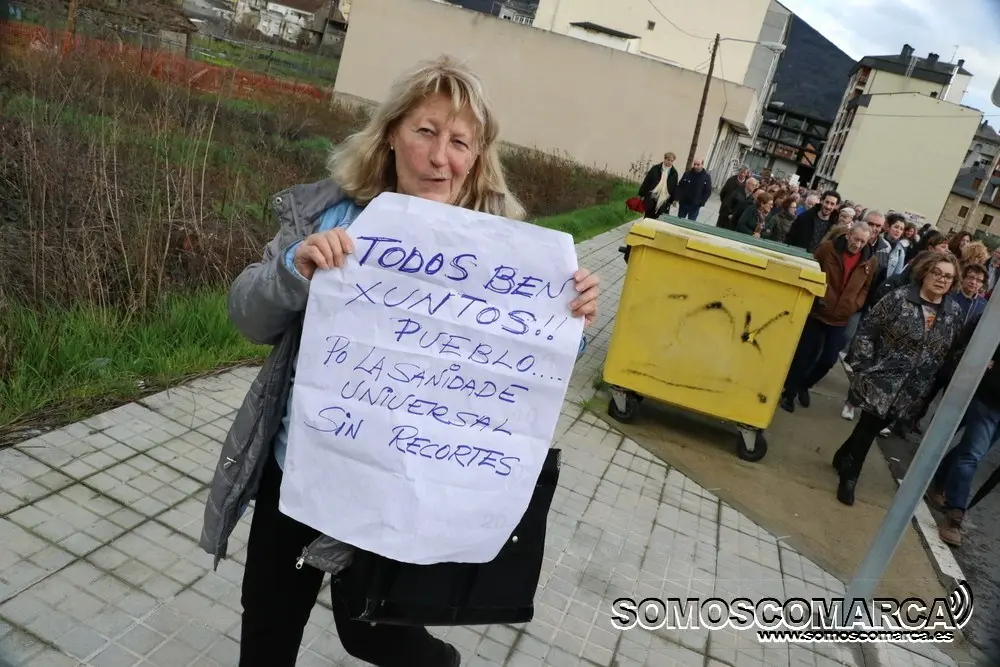 TODOS BEN
XUNTOS!!
PUEBLO....
PO LA SANIDADE
UNIVERSAL
SIN RECORTES
OK
SOMOSCOMARCA
www.somoscomarca.es